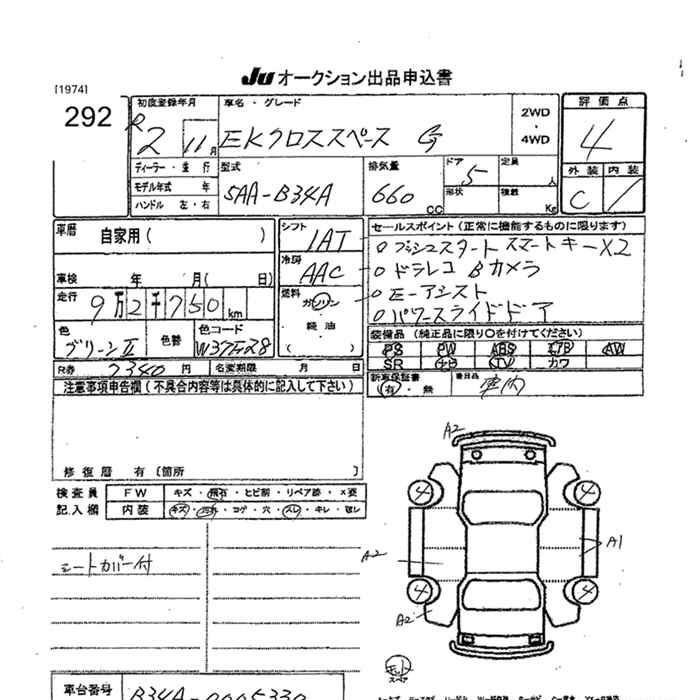 JU オークション出品申込書
[1974]
292
初度登録年月 車名・グレード 2WD ・ 4WD 評価点
R2 11月 EKクロススペース G 4
ディーラー・並行 型式 排気量 ドア 定員 外装 内装
モデル年式 年 5AA-B34A 660cc 5 人 C 1
ハンドル 左・右 形状 積載 Kg
車歴 自家用( ) シフト セールスポイント(正常に機能するものに限ります)
1AT ○プッシュスタート スマートキーX2
冷房 AAC ○ドラレコ Bカメラ
車検 年 月( 日)
走行 9万2千750km 燃料 ガソリン ○E-アシスト
軽油 ○パワースライドドア
色 色替 色コード ( ) 装備品(純正品に限り○を付けてください)
グリーンⅡ W37F28 PS PW ABS エアB AW
SR ナビ TV カワ
R券 7340円 名変期限 月 日 新車保証書 後日品
注意事項申告欄(不具合内容等は具体的に記入して下さい) 有・無 車内
修復歴 有[箇所 ]
検査員 FW キズ・飛石・ヒビ割・リペア跡・×要
記入欄 内装 キズ・汚れ・コゲ・穴・スレ・キレ・破レ
シートカバー付
A2
4 4
A1
A2
4 4
A2
スペア
車台番号 B34A-0005330